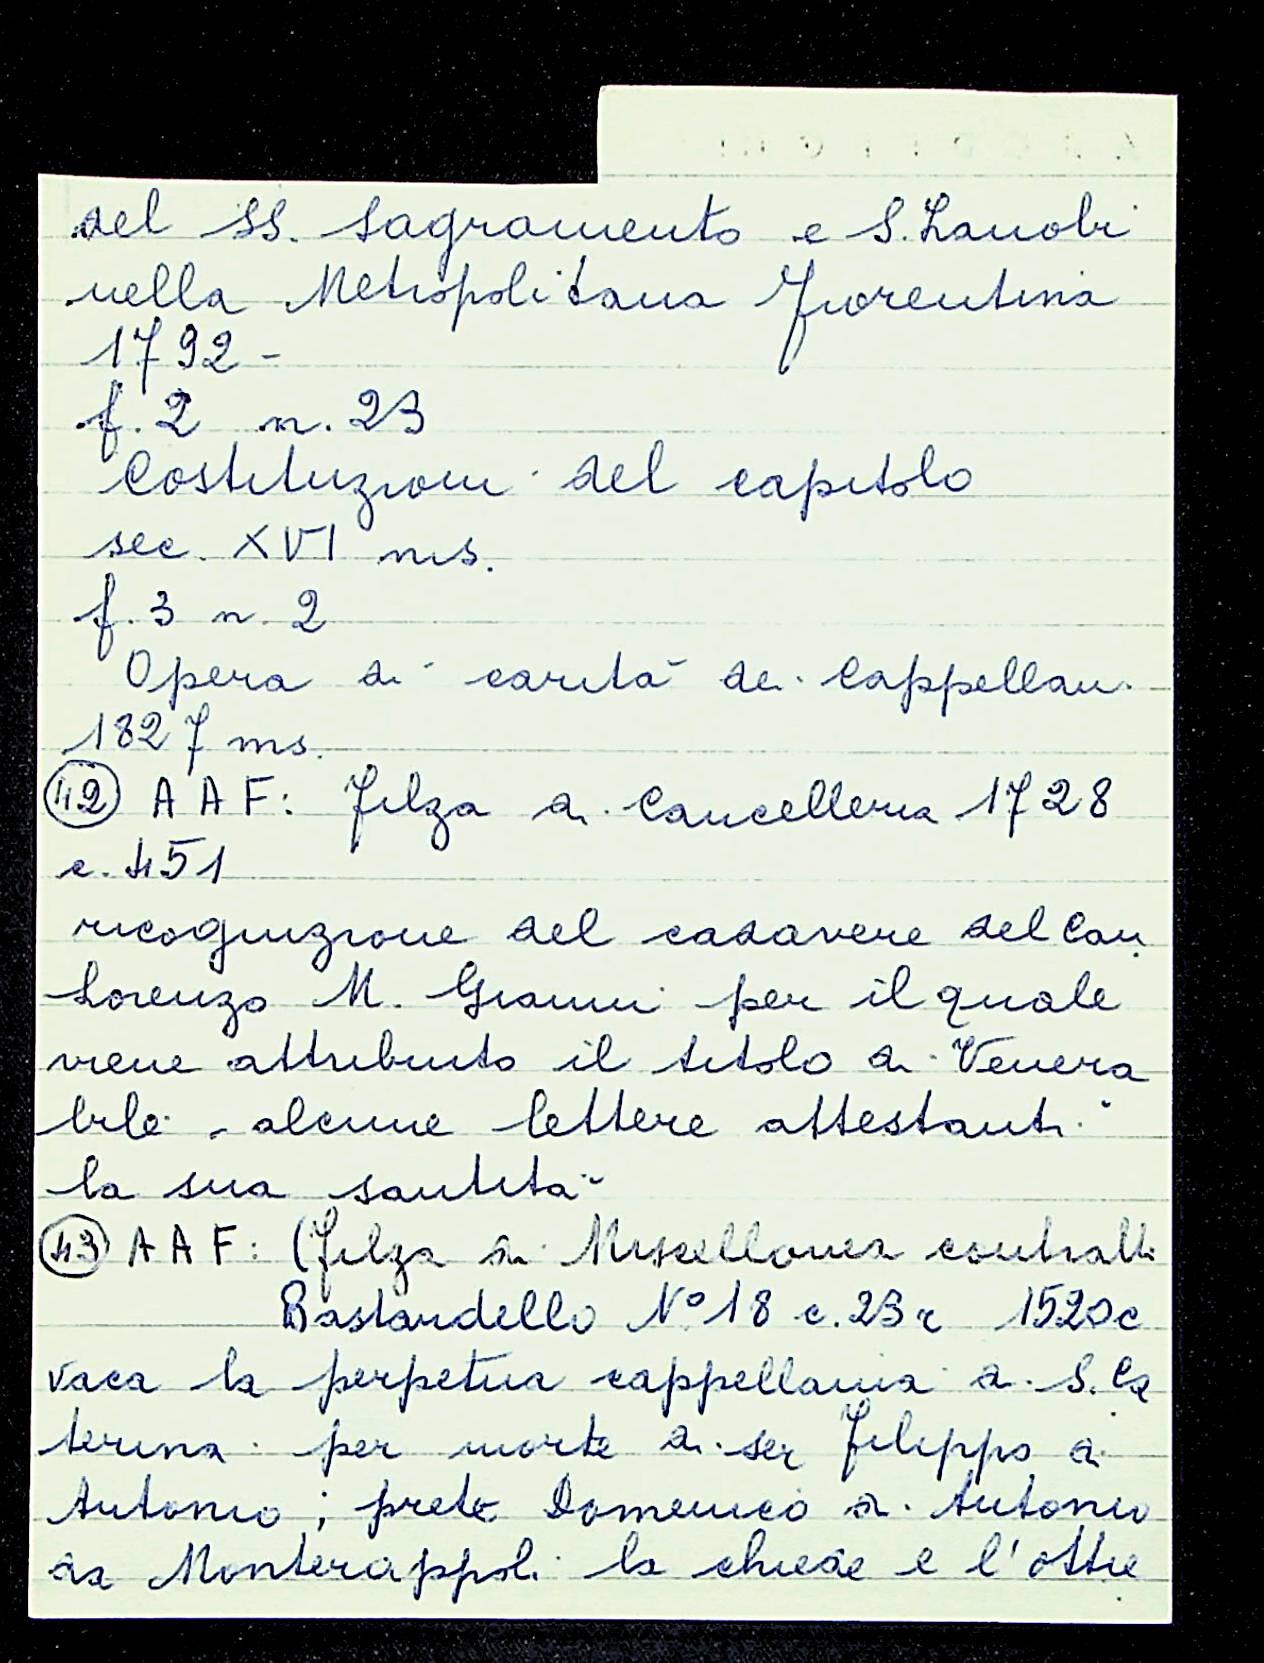 del SS. Sagramento e S. Zanobi
nella Metropolitana Fiorentina
1792 -
f. 2 n. 23
Costituzioni del capitolo
sec. XVI ms.
f. 3 n. 2
Opera di carità dei Cappellani
1827 ms.
42 A A F: Filza di Cancelleria 1728
c. 451
ricognizione del cadavere del Can.
Lorenzo M. Gianni per il quale
viene attribuito il titolo di Venera
bile - alcune lettere attestanti
la sua santità
43 A A F: (Filza di Miscellanea contratti
Bastardello N° 18 c. 23r 1520c
vaca la perpetua cappellania di S. Ca
terina per morte di ser Filippo di
Antonio; prete Domenico di Antonio
da Monterappoli la chiede e l'ottie